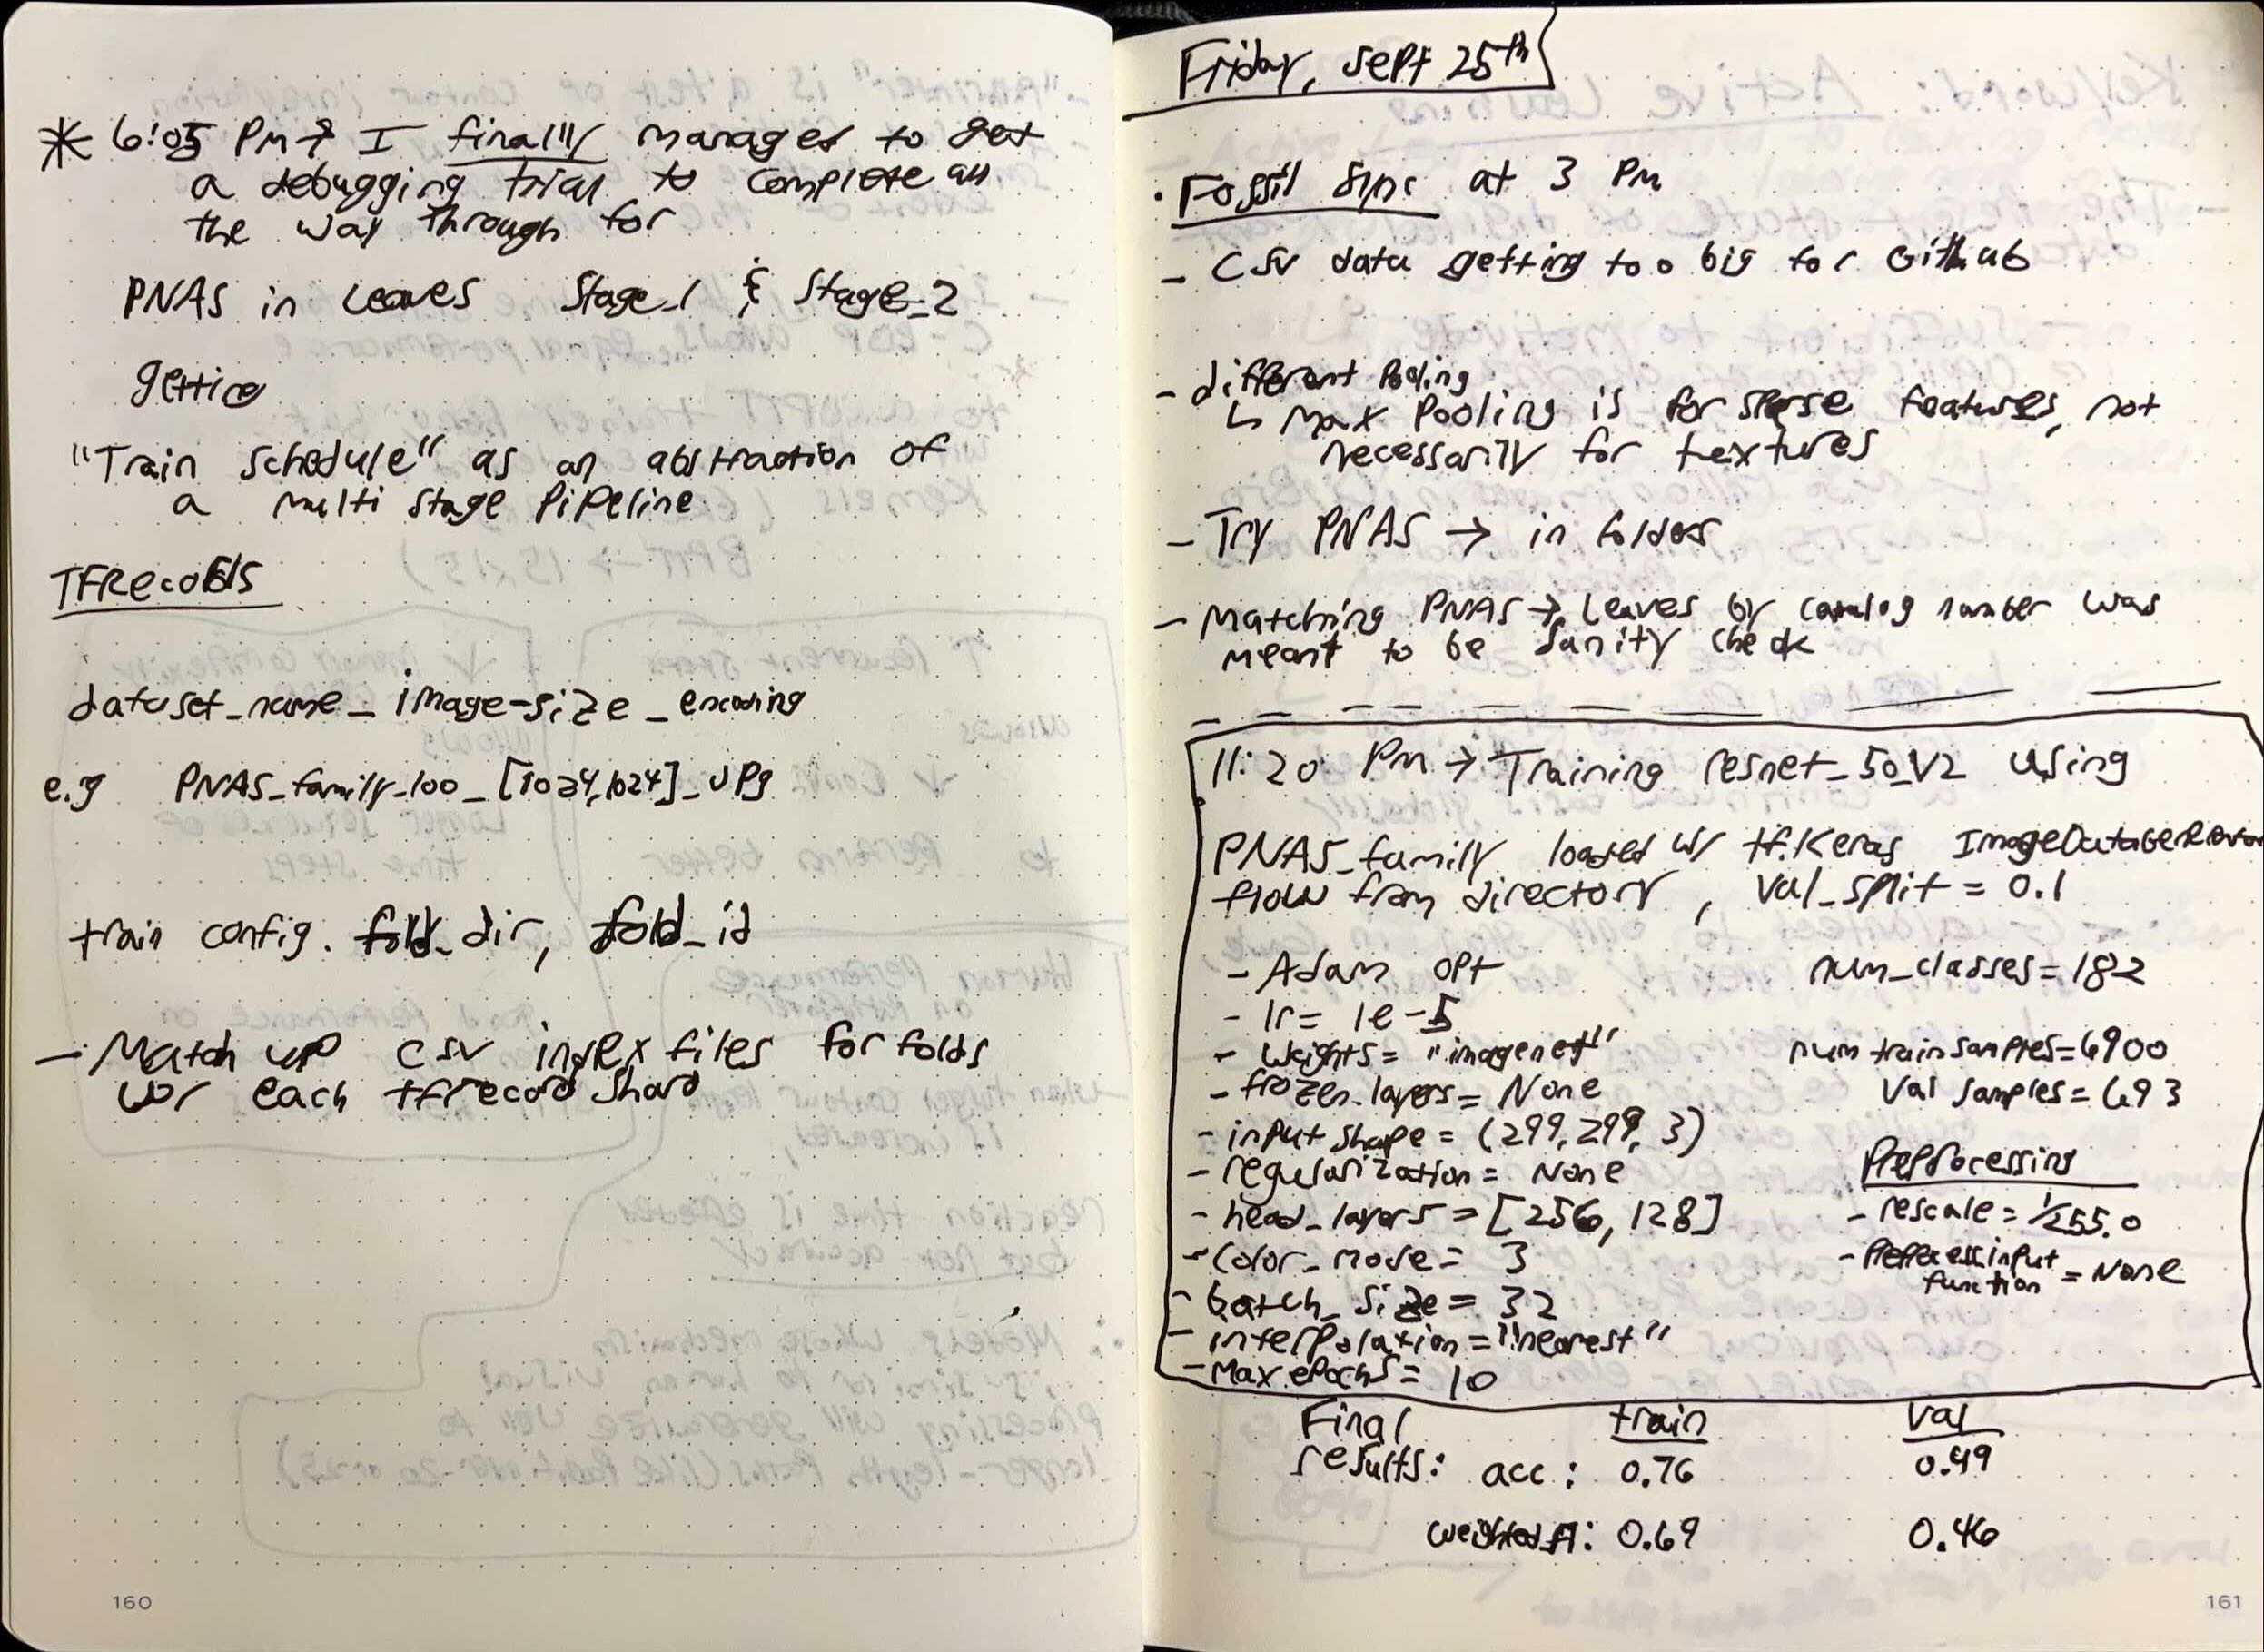 * 6:05 PM → I finally managed to get
a debugging trial to complete all
the way through for
PNAS in Leaves Stage_1 & Stage_2
getting
"Train schedule" as an abstraction of
a multi stage pipeline
TFRecords
dataset_name_image-size_encoding
e.g PNAS_family_100_[1024,1024]_jpg
train config. fold_dir, fold_id
- Match up csv index files for folds
w/ each tfrecord shard
160
Friday, Sept 25th
· Fossil Sync at 3 PM
- CSV data getting too big for Github
- different Pooling
↳ Max Pooling is for sparse features, not
necessarily for textures
- Try PNAS → in folders
- Matching PNAS → Leaves by catalog number was
meant to be Sanity check
11:20 PM → Training resnet_50_V2 using
PNAS_family loaded w/ tf.Keras ImageDataGenerator
flow from directory, val_split = 0.1
- Adam opt
- lr = 1e-5
- weights = "imagenet"
- frozen_layers = None
- input shape = (299, 299, 3)
- regularization = None
- head_layers = [256, 128]
- color_mode = 3
- batch_size = 32
- interpolation = "nearest"
- Max epochs = 10
num_classes = 182
num train samples = 6900
val samples = 693
Preprocessing
- rescale = 1/255.0
- Preprocess input
function = None
Final train val
results: acc: 0.76 0.49
weighted_f1: 0.69 0.46
161